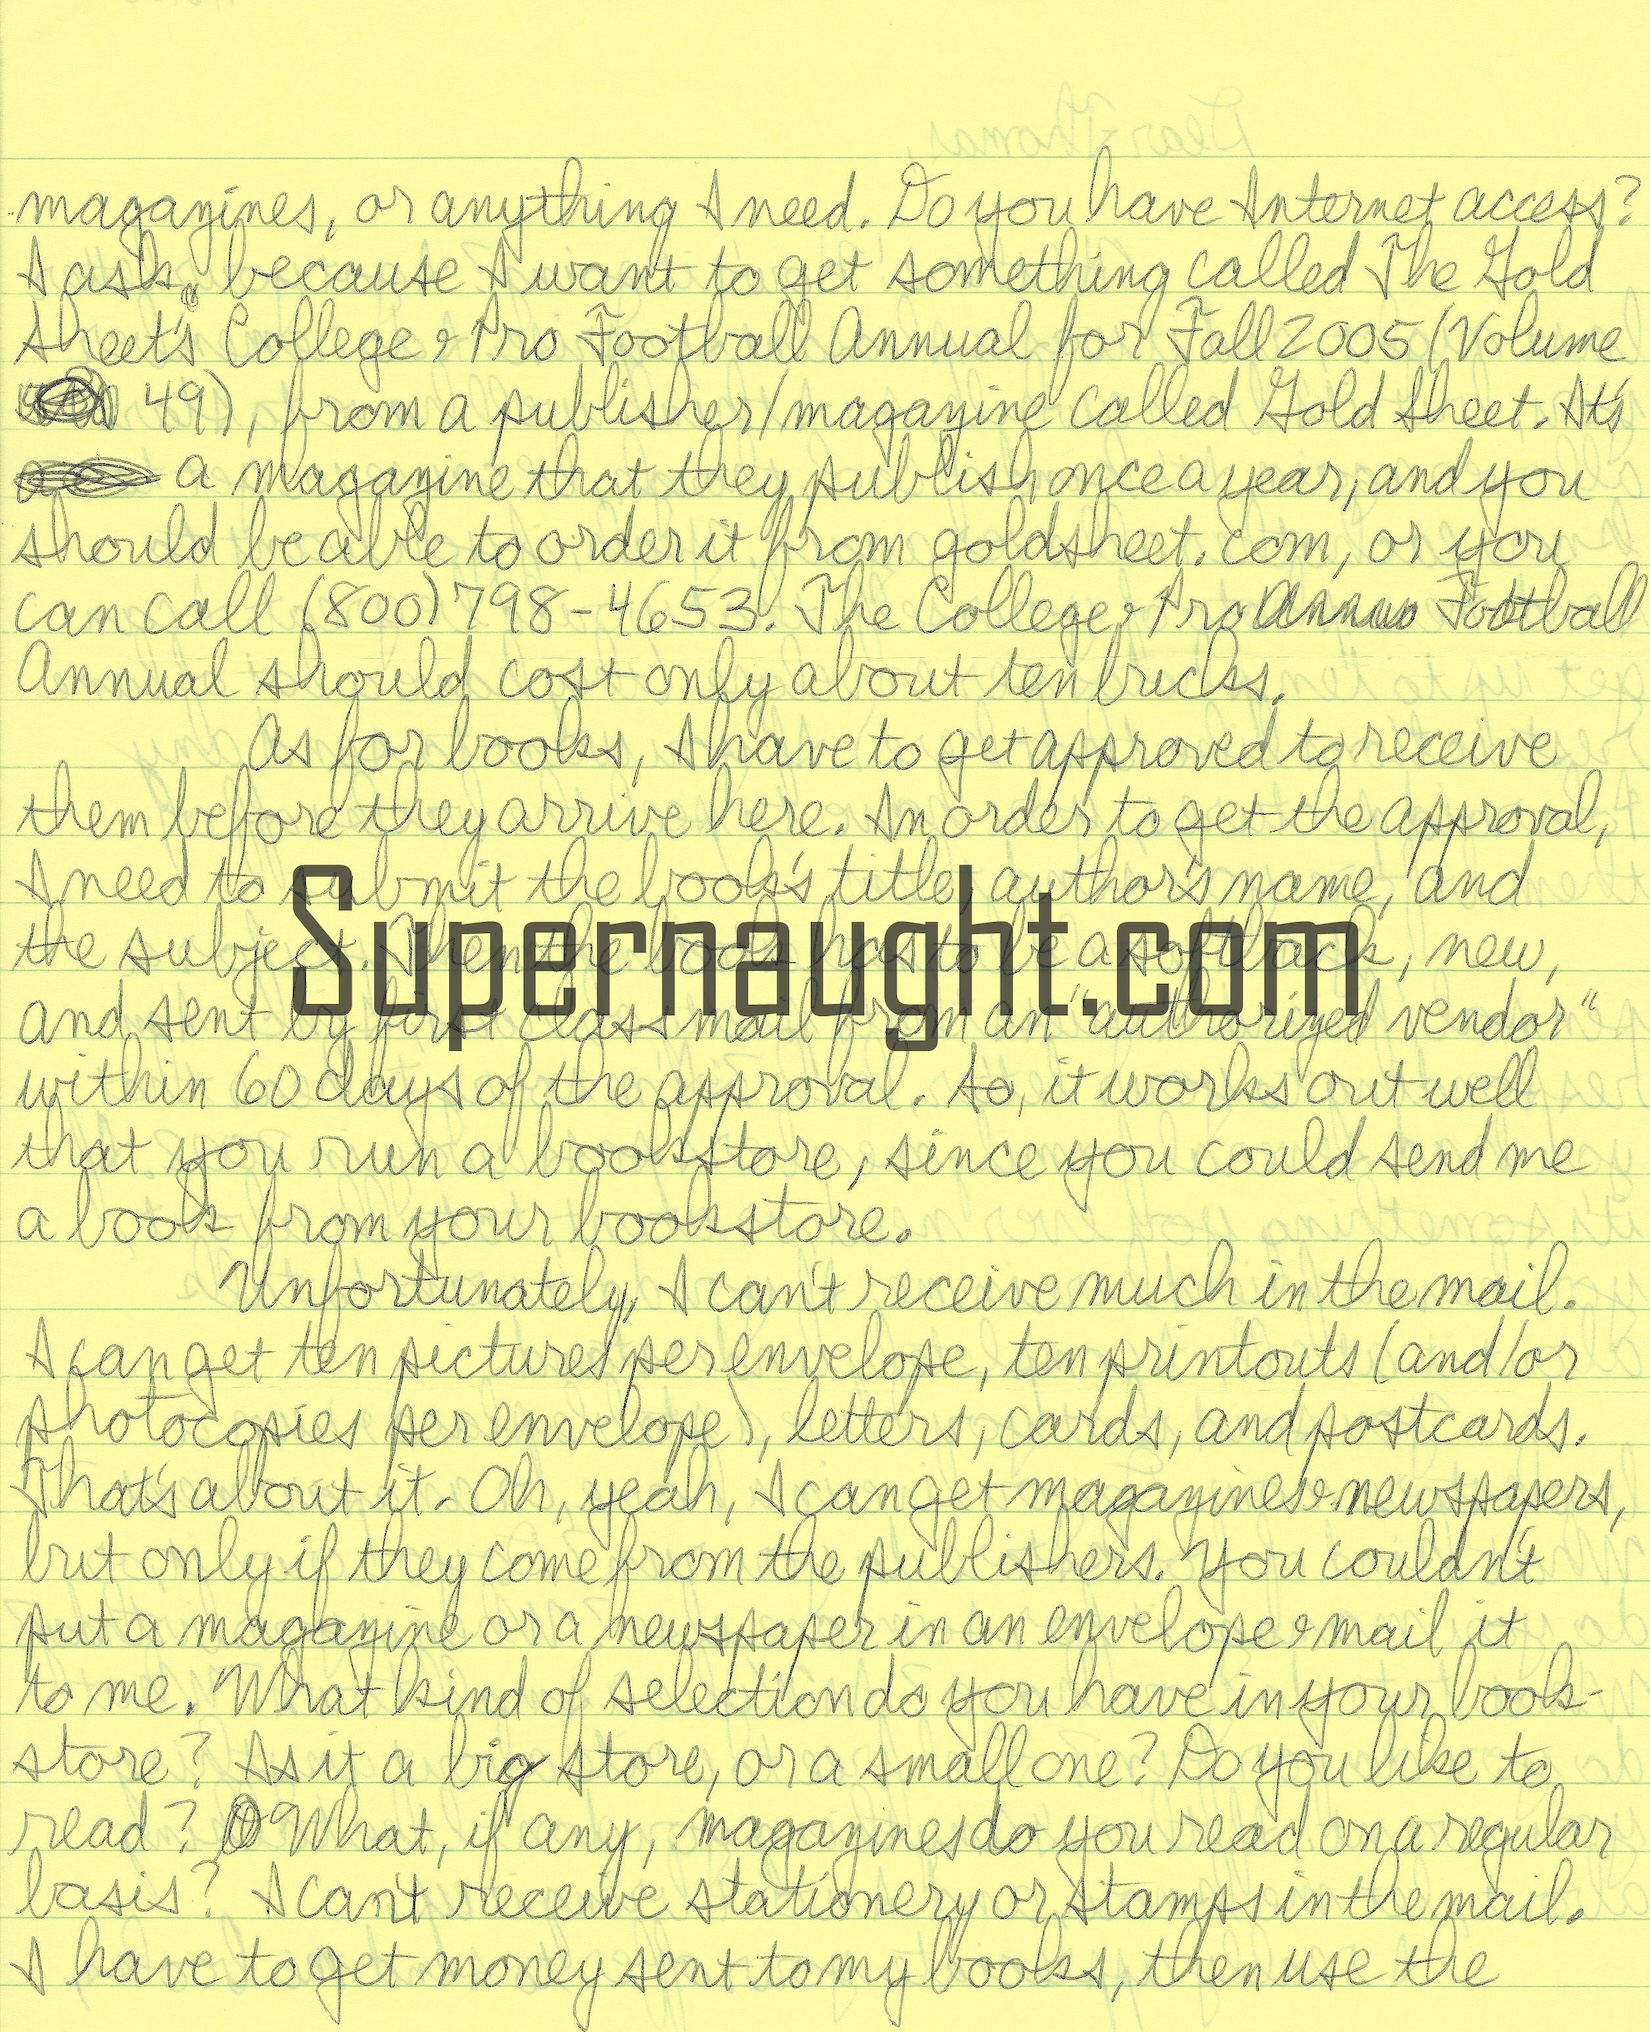 magazines, or anything I need. Do you have Internet access?
I ask, because I want to get something called The Gold
Sheet's College & Pro Football Annual for Fall 2005 (Volume
49), from a publisher/magazine called Gold Sheet. It's
a magazine that they publish once a year, and you
should be able to order it from goldsheet.com, or you
can call (800) 798-4653. The College & Pro Football
Annual should cost only about ten bucks.
As for books, I have to get approved to receive
them before they arrive here. In order to get the approval,
I need to submit the book's title, author's name, and
the subject. Then the book has to be a softback, new,
Supernaught.com
and sent by first class mail from an "authorized vendor"
within 60 days of the approval. So, it works out well
that you run a bookstore, since you could send me
a book from your bookstore.
Unfortunately, I can't receive much in the mail.
I can get ten pictures per envelope, ten printouts (and/or
photocopies per envelope), letters, cards, and postcards.
That's about it. Oh, yeah, I can get magazines & newspapers,
but only if they come from the publishers. You couldn't
put a magazine or a newspaper in an envelope & mail it
to me. What kind of selection do you have in your book-
store? Is it a big store, or a small one? Do you like to
read? What, if any, magazines do you read on a regular
basis? I can't receive stationery or stamps in the mail.
I have to get money sent to my books, then use the